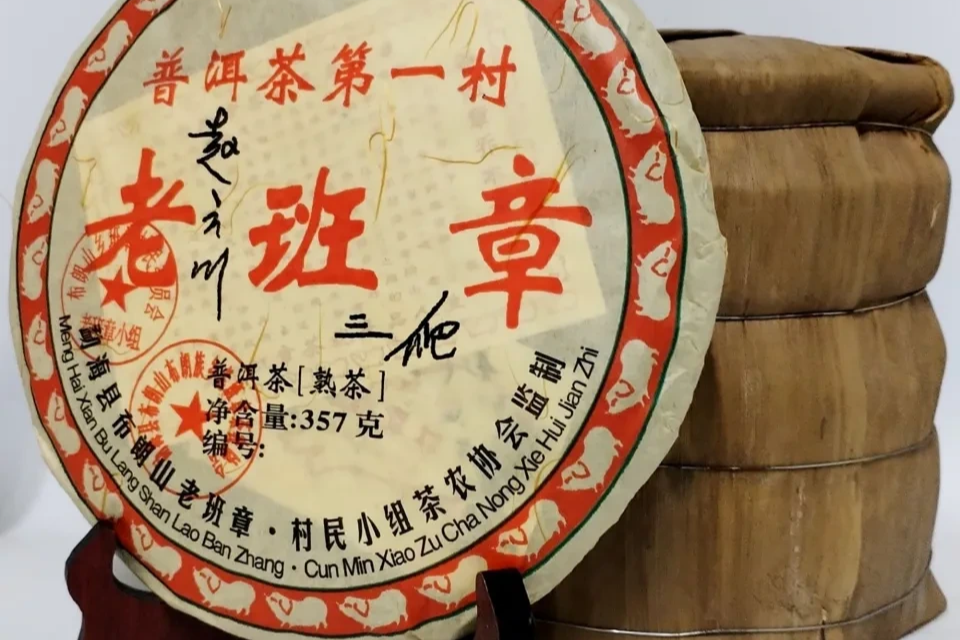 普洱茶第一村
老班章
三爬
普洱茶[熟茶]
净含量:357克
编号:
勐海县布朗山老班章·村民小组茶农协会监制
Meng Hai Xian Bu Lang Shan Lao Ban Zhang · Cun Min Xiao Zu Cha Nong Xie Hui Jian Zhi